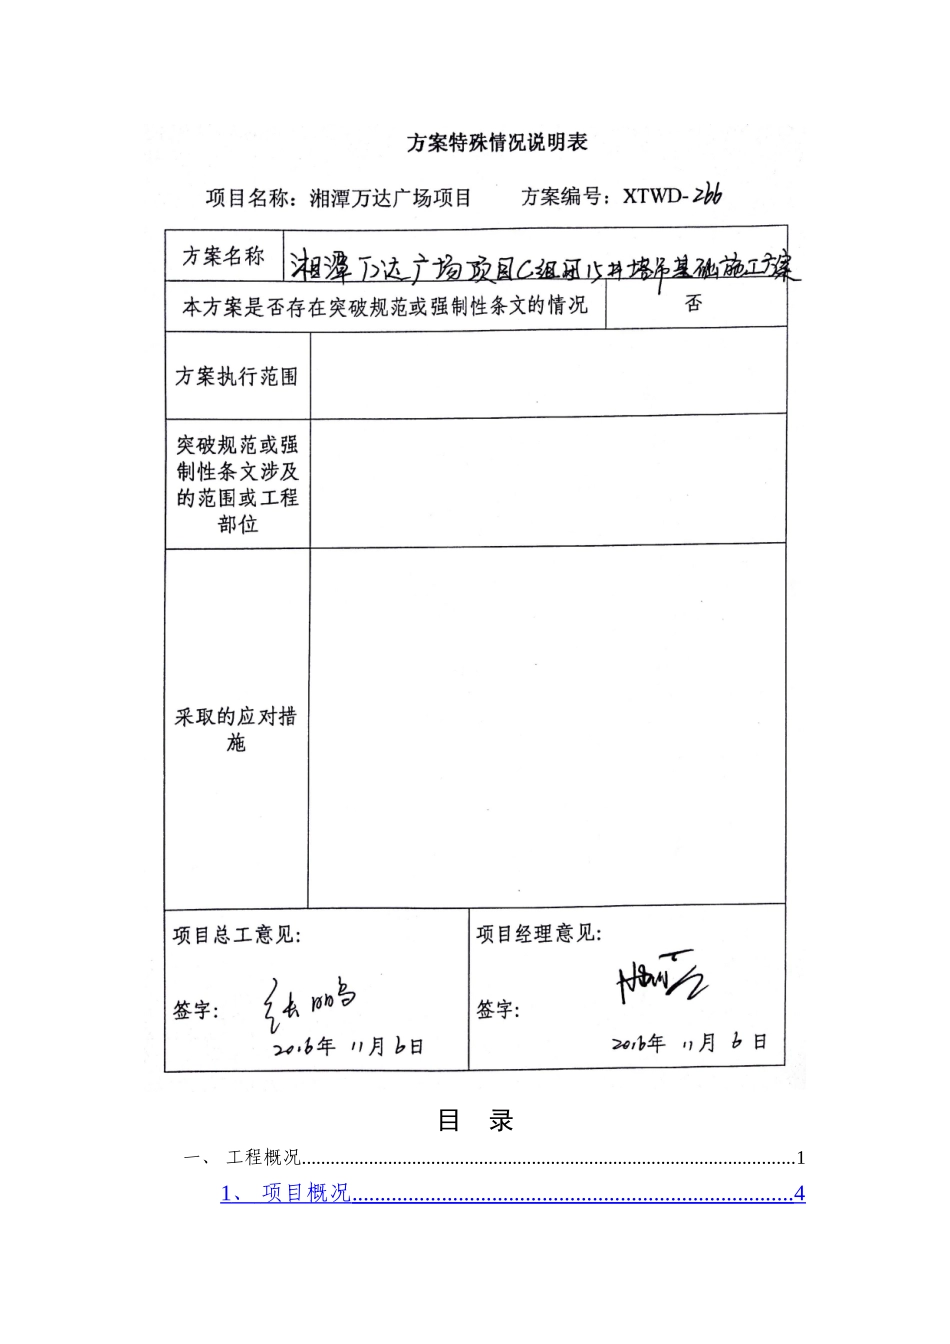 方案特殊情况说明表
项目名称：湘潭万达广场项目 方案编号：XTWD-266
方案名称 湘潭万达广场项目C组团15#塔吊基础施工方案
本方案是否存在突破规范或强制性条文的情况 否
方案执行范围
突破规范或强
制性条文涉及
的范围或工程
部位
采取的应对措
施
项目总工意见: 项目经理意见:
签字: 张鹏 签字:
2016年 11月 6日 2016年 11月 6日
目 录
一、 工程概况........................................................................................................1
1、 项目概况................................................................................4